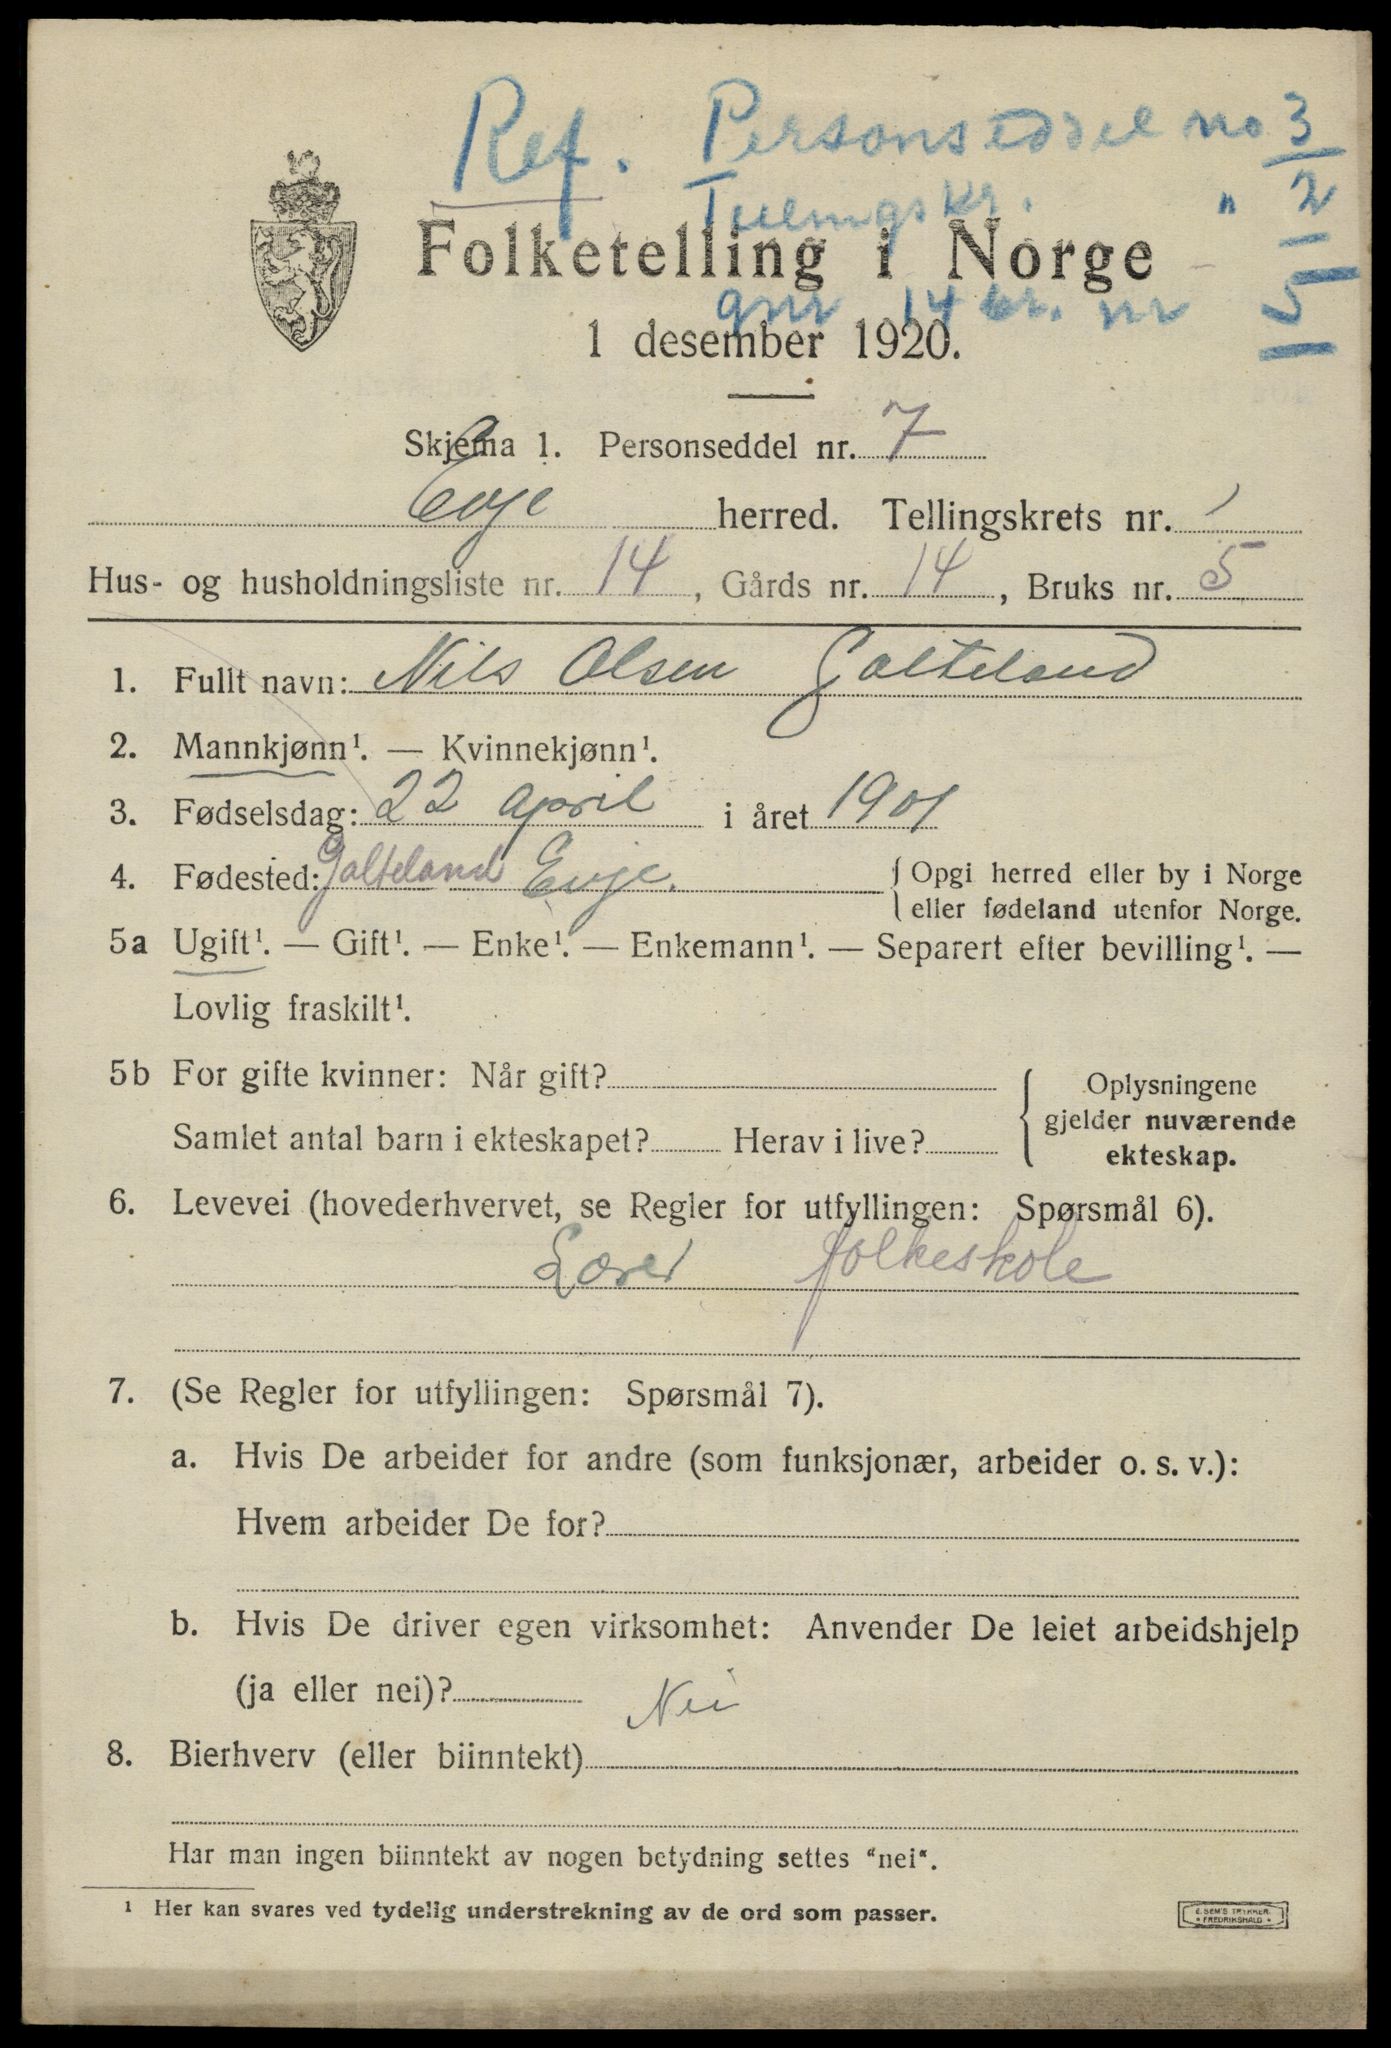 Ref. Personseddel no 3
Tellingskr. " 2
gnr 14 br. nr 5
Folketelling i Norge
1 desember 1920.
Skjema 1. Personseddel nr. 7
Evje herred. Tellingskrets nr. 1
Hus- og husholdningsliste nr. 14, Gårds nr. 14, Bruks nr. 5
1. Fullt navn: Nils Olsen Galteland
2. Mannkjønn¹. — Kvinnekjønn¹.
3. Fødselsdag: 22 april i året 1901
4. Fødested: Galteland Evje. { Opgi herred eller by i Norge
eller fødeland utenfor Norge.
5a Ugift¹. — Gift¹. — Enke¹. — Enkemann¹. — Separert efter bevilling¹. —
Lovlig fraskilt¹.
5b For gifte kvinner: Når gift?
Samlet antal barn i ekteskapet? Herav i live?
{ Oplysningene
gjelder nuværende
ekteskap.
6. Levevei (hovederhvervet, se Regler for utfyllingen: Spørsmål 6).
Lærer folkeskole
7. (Se Regler for utfyllingen: Spørsmål 7).
a. Hvis De arbeider for andre (som funksjonær, arbeider o. s. v.):
Hvem arbeider De for?
b. Hvis De driver egen virksomhet: Anvender De leiet arbeidshjelp
(ja eller nei)?
Nei
8. Bierhverv (eller biinntekt)
Har man ingen biinntekt av nogen betydning settes "nei".
¹ Her kan svares ved tydelig understrekning av de ord som passer.
E. SEM'S TRYKKERI
* FREDRIKSHALD *